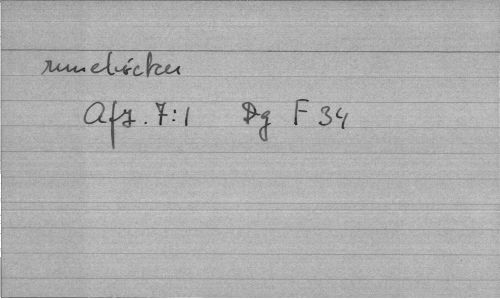 runebäcken
Afz. 7:1 Dg F 34